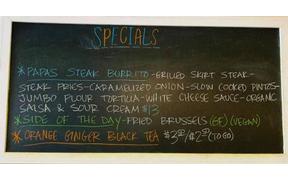 SPECIALS
*PAPAS STEAK BURRITO-GRILLED SKIRT STEAK-
STEAK FRIES-CARAMELIZED ONION-SLOW COOKED PINTOS-
JUMBO FLOUR TORTILLA-WHITE CHEESE SAUCE-ORGANIC
SALSA & SOUR CREAM $13
*SIDE OF THE DAY-FRIED BRUSSELS (GF) (VEGAN)
*ORANGE GINGER BLACK TEA $3.50/$2.50 (TO GO)